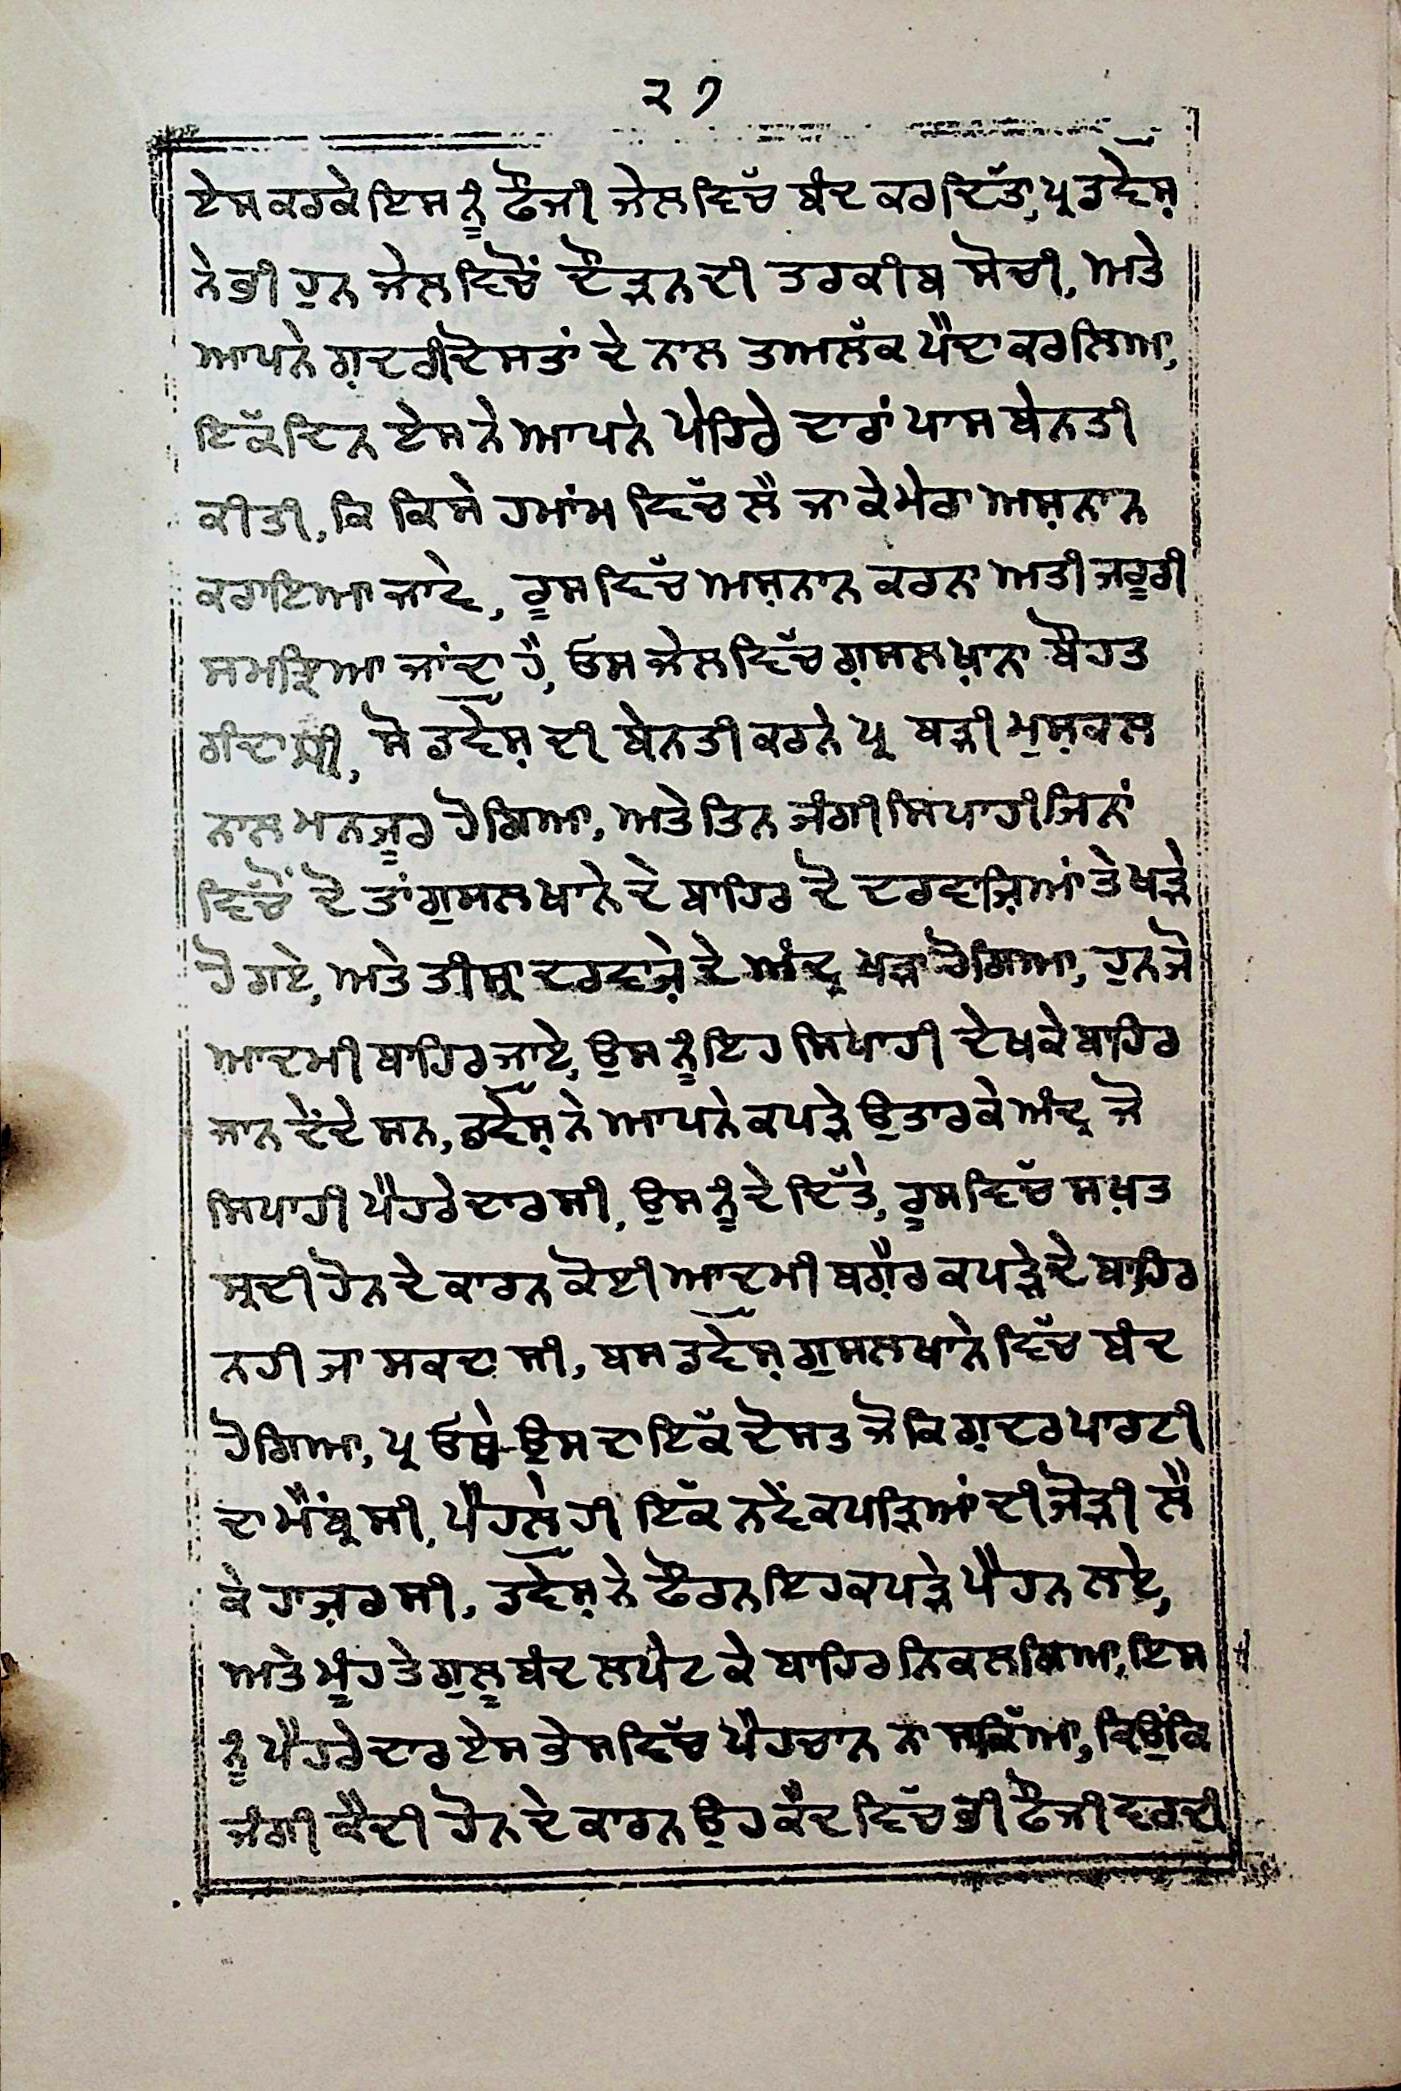 ੨੭
ਏਸ ਕਰਕੇ ਇਸ ਨੂੰ ਫੌਜੀ ਜੇਲ ਵਿੱਚ ਬੰਦ ਕਰ ਦਿੱਤਾ, ਪ੍ਰ ਡਵੇਸ਼
ਨੇ ਭੀ ਹੁਨ ਜੇਲ ਵਿਚੋਂ ਦੌੜਨ ਦੀ ਤਰਕੀਬ ਸੋਚੀ, ਅਤੇ
ਆਪਨੇ ਗ਼ਦਰੀ ਦੋਸਤਾਂ ਦੇ ਨਾਲ ਤਅਲੱਕ ਪੈਦਾ ਕਰ ਲਿਆ,
ਇੱਕ ਦਿਨ ਏਸ ਨੇ ਆਪਨੇ ਪੇਹਿਰੇ ਦਾਰਾਂ ਪਾਸ ਬੇਨਤੀ
ਕੀਤੀ, ਕਿ ਕਿਸੇ ਹਮਾਂਮ ਵਿੱਚ ਲੈ ਜਾ ਕੇ ਮੇਰਾ ਅਸ਼ਨਾਨ
ਕਰਾਇਆ ਜਾਵੇ, ਰੂਸ ਵਿੱਚ ਅਸ਼ਨਾਨ ਕਰਨਾ ਅਤੀ ਜ਼ਰੂਰੀ
ਸਮਝਿਆ ਜਾਂਦਾ ਹੈ, ਓਸ ਜੇਲ ਵਿੱਚ ਗ਼ੁਸਲਖ਼ਾਨਾ ਬੌਹਤ
ਗੰਦਾ ਸੀ, ਸੋ ਡਵੇਸ਼ ਦੀ ਬੇਨਤੀ ਕਰਨੇ ਪ੍ਰ ਬੜੀ ਮੁਸ਼ਕਲ
ਨਾਲ ਮਨਜ਼ੂਰ ਹੋਗਿਆ, ਅਤੇ ਤਿਨ ਜੰਗੀ ਸਿਪਾਹੀ ਜਿਨਾਂ
ਵਿੱਚੋਂ ਦੋ ਤਾਂ ਗੁਸਲਖਾਨੇ ਦੇ ਬਾਹਿਰ ਦੋ ਦਰਵਾਜ਼ਿਆਂ ਤੇ ਖੜੇ
ਹੋ ਗਏ, ਅਤੇ ਤੀਸ੍ਰਾ ਦਰਵਾਜ਼ੇ ਦੇ ਅੰਦ੍ਰ ਖੜਾ ਹੋਗਿਆ, ਹੁਨ ਜੋ
ਆਦਮੀ ਬਾਹਿਰ ਜਾਏ, ਉਸ ਨੂੰ ਇਹ ਸਿਪਾਹੀ ਦੇਖਕੇ ਬਾਹਿਰ
ਜਾਨ ਦੇਂਦੇ ਸਨ, ਡਵੇਸ਼ ਨੇ ਆਪਨੇ ਕਪੜੇ ਉਤਾਰਕੇ ਅੰਦ੍ਰ ਜੋ
ਸਿਪਾਹੀ ਪੈਹਰੇਦਾਰ ਸੀ, ਉਸ ਨੂੰ ਦੇ ਦਿੱਤੇ, ਰੂਸ ਵਿੱਚ ਸਖ਼ਤ
ਸ੍ਰਦੀ ਹੋਨ ਦੇ ਕਾਰਨ ਕੋਈ ਆਦਮੀ ਬਗ਼ੈਰ ਕਪੜੇ ਦੇ ਬਾਹਿਰ
ਨਹੀ ਜਾ ਸਕਦਾ ਸੀ, ਬਸ ਡਵੇਸ਼ ਗੁਸਲਖਾਨੇ ਵਿੱਚ ਬੰਦ
ਹੋਗਿਆ, ਪ੍ਰ ਓਥੇ ਉਸ ਦਾ ਇੱਕ ਦੋਸਤ ਜੋ ਕਿ ਗ਼ਦਰ ਪਾਰਟੀ
ਦਾ ਮੈਂਬ੍ਰ ਸੀ, ਪੈਹਲੇ ਹੀ ਇੱਕ ਨਵੇਂ ਕਪੜਿਆਂ ਦੀ ਜੋੜੀ ਲੈ
ਕੇ ਹਾਜ਼ਰ ਸੀ, ਡਵੇਸ਼ ਨੇ ਫੌਰਨ ਇਹ ਕਪੜੇ ਪੈਹਨ ਲਏ,
ਅਤੇ ਮੂੰਹ ਤੇ ਗੁਲੂਬੰਦ ਲਪੇਟ ਕੇ ਬਾਹਿਰ ਨਿਕਲ ਗਿਆ, ਇਸ
ਨੂੰ ਪੈਹਰੇਦਾਰ ਏਸ ਭੇਸ ਵਿੱਚ ਪੈਹਚਾਨ ਨਾ ਸਕਿੱਆ, ਕਿਉਂਕਿ
ਜੰਗੀ ਕੈਦੀ ਹੋਨ ਦੇ ਕਾਰਨ ਉਹ ਕੈਦ ਵਿੱਚ ਭੀ ਫੌਜੀ ਵਰਦੀ